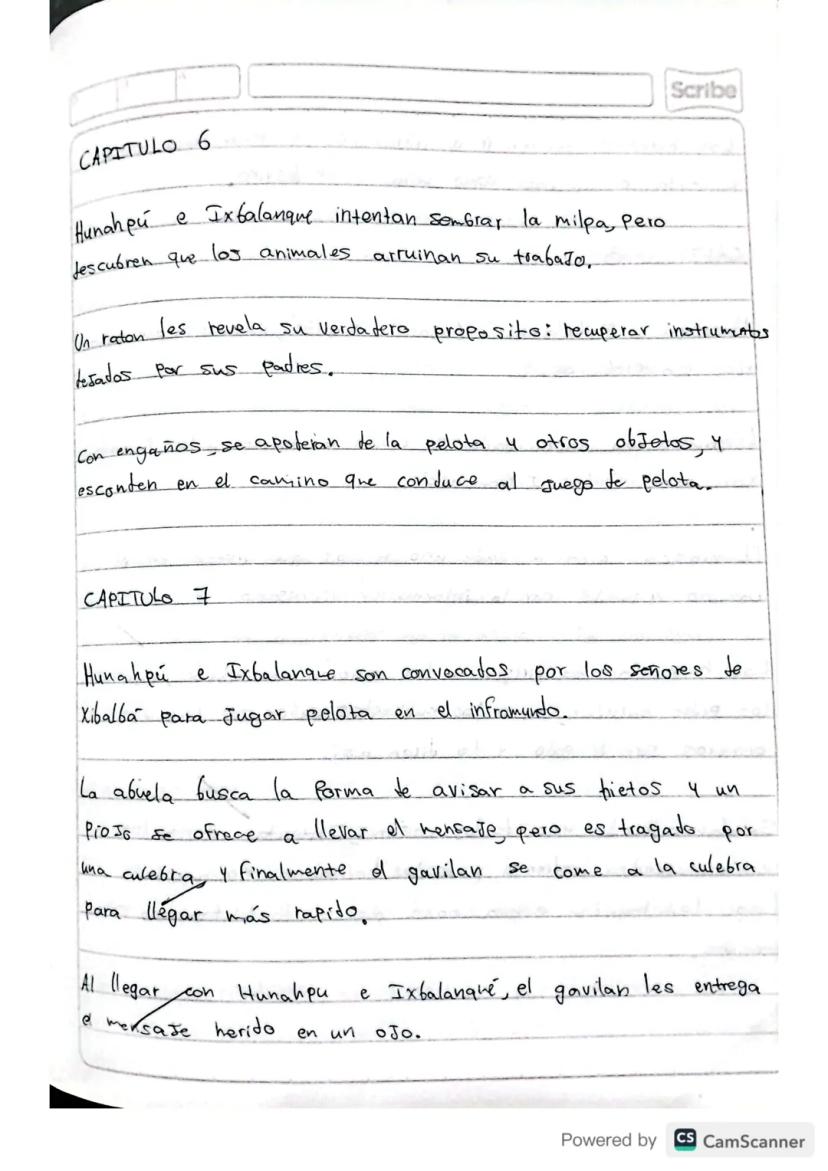 Scribe
CAPITULO 6
Hunahpú e Ixbalanque intentan sembrar la milpa, pero
descubren que los animales arruinan su trabajo.
Un raton les revela su verdadero proposito: recuperar instrumentos
dejados por sus padres.
Con engaños, se apoderan de la pelota y otros objetos, y
esconden en el camino que conduce al juego de pelota.
CAPITULO 7
Hunahpú e Ixbalanque son convocados por los señores de
Xibalbá para jugar pelota en el inframundo.
La abuela busca la forma de avisar a sus nietos y un
piojo se ofrece a llevar el mensaje, pero es tragado por
una culebra, y finalmente el gavilan se come a la culebra
para llegar más rapido.
Al llegar con Hunahpu e Ixbalanqué, el gavilan les entrega
el mensaje herido en un ojo.
Powered by CS CamScanner